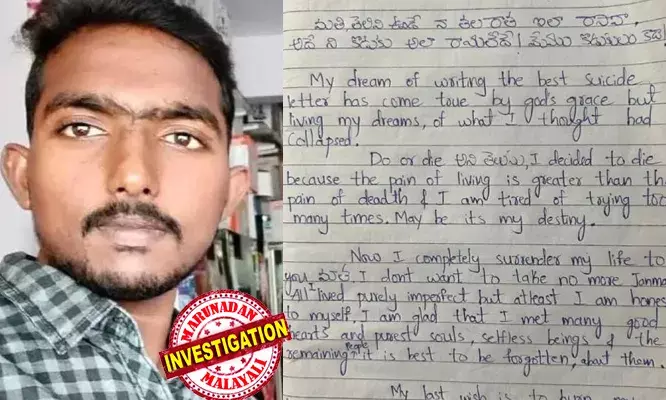 My dream of writing the best suicide
letter has come true by god's grace but
living my dreams, of what I thought had
Collapsed.
Do or die అని తెలుసు, I decided to die
because the pain of living is greater than th
pain of deadth & I am tired of trying too
many times. May be its my destiny.
Now I completely surrender my life to
you I dont want to take no more Janma
All I lived purely imperfect but atleast I am hones
to myself, I am glad that I met many good
hearts and purest souls, selfless beings & the
remaining People it is best to be forgotten, about them.
My last wish is to burn my
MARUNADAN
INVESTIGATION
MALAYALI